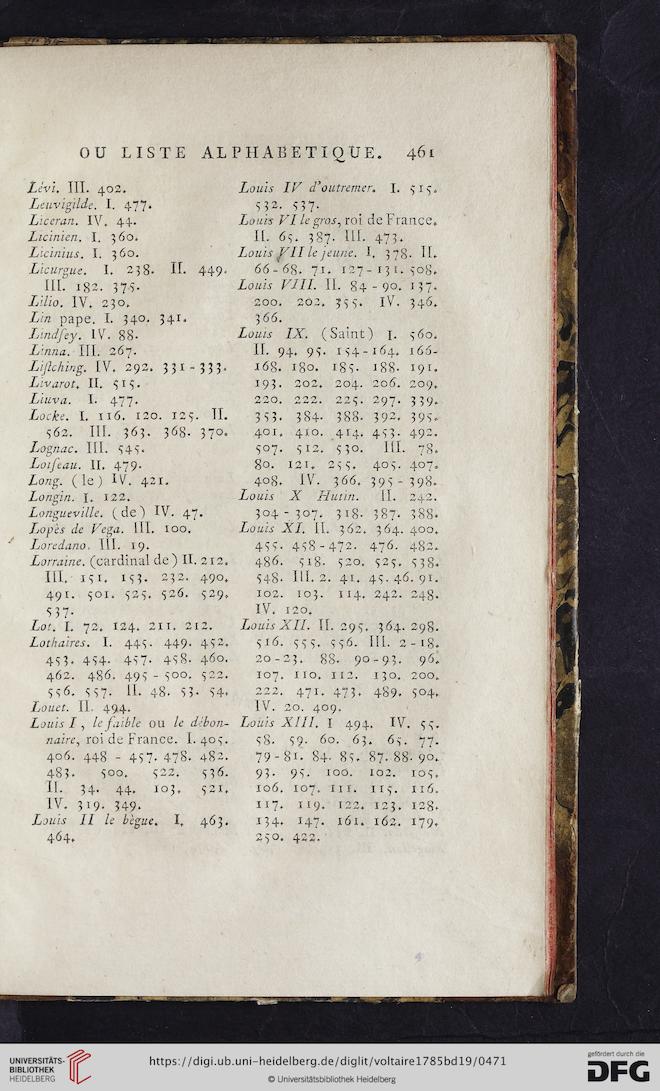 OU LISTE ALPHABETIQUE. 461
Lévi. III. 402.
Leuvigilde. I. 477.
Liceran. IV. 44.
Licinien. I. 360.
Licinius. I. 360.
Licurgue. I. 238. II. 449.
III. 182. 375.
Lilio. IV. 230.
Lin pape. I. 340. 341.
Lindſey. IV. 88.
Linna. III. 267.
Liſtching. IV. 292. 331-333.
Livarot. II. 515.
Liuva. I. 477.
Locke. I. 116. 120. 125. II.
562. III. 363. 368. 370.
Lognac. III. 545.
Loiſeau. II. 479.
Long. (le) IV. 421.
Longin. I. 122.
Longueville. (de) IV. 47.
Lopès de Vega. III. 100.
Loredano. III. 19.
Lorraine. (cardinal de) II. 212.
III. 151. 153. 232. 490.
491. 501. 525. 526. 529.
537.
Lot. I. 72. 124. 211. 212.
Lothaires. I. 445. 449. 452.
453. 454. 457. 458. 460.
462. 486. 495 - 500. 522.
556. 557. II. 48. 53. 54.
Louet. II. 494.
Louis I, le faible ou le débon-
naire, roi de France. I. 405.
406. 448 - 457. 478. 482.
483. 500. 522. 536.
II. 34. 44. 103. 521.
IV. 319. 349.
Louis II le bègue. I. 463.
464.
Louis IV d'outremer. I. 515.
532. 537.
Louis VI le gros, roi de France.
II. 65. 387. III. 473.
Louis VII le jeune. I. 378. II.
66-68. 71. 127-131. 508.
Louis VIII. II. 84-90. 137.
200. 202. 355. IV. 346.
366.
Louis IX. (Saint) I. 560.
II. 94. 95. 154-164. 166-
168. 180. 185. 188. 191.
193. 202. 204. 206. 209.
220. 222. 225. 297. 339.
353. 384. 388. 392. 395.
401. 410. 414. 453. 492.
507. 512. 530. III. 78.
80. 121. 255. 405. 407.
408. IV. 366. 395-398.
Louis X Hutin. II. 242.
304-307. 318. 387. 388.
Louis XI. II. 362. 364. 400.
455. 458-472. 476. 482.
486. 518. 520. 525. 538.
548. III. 2. 41. 45. 46. 91.
102. 103. 114. 242. 248.
IV. 120.
Louis XII. II. 295. 364. 298.
516. 555. 556. III. 2-18.
20-23. 88. 90-93. 96.
107. 110. 112. 130. 200.
222. 471. 473. 489. 504.
IV. 20. 409.
Louis XIII. I 494. IV. 55.
58. 59. 60. 63. 65. 77.
79-81. 84. 85. 87. 88. 90.
93. 95. 100. 102. 105.
106. 107. 111. 115. 116.
117. 119. 122. 123. 128.
134. 147. 161. 162. 179.
250. 422.
UNIVERSITÄTS-
BIBLIOTHEK
HEIDELBERG
https://digi.ub.uni-heidelberg.de/diglit/voltaire1785bd19/0471
© Universitätsbibliothek Heidelberg
gefördert durch die
DFG